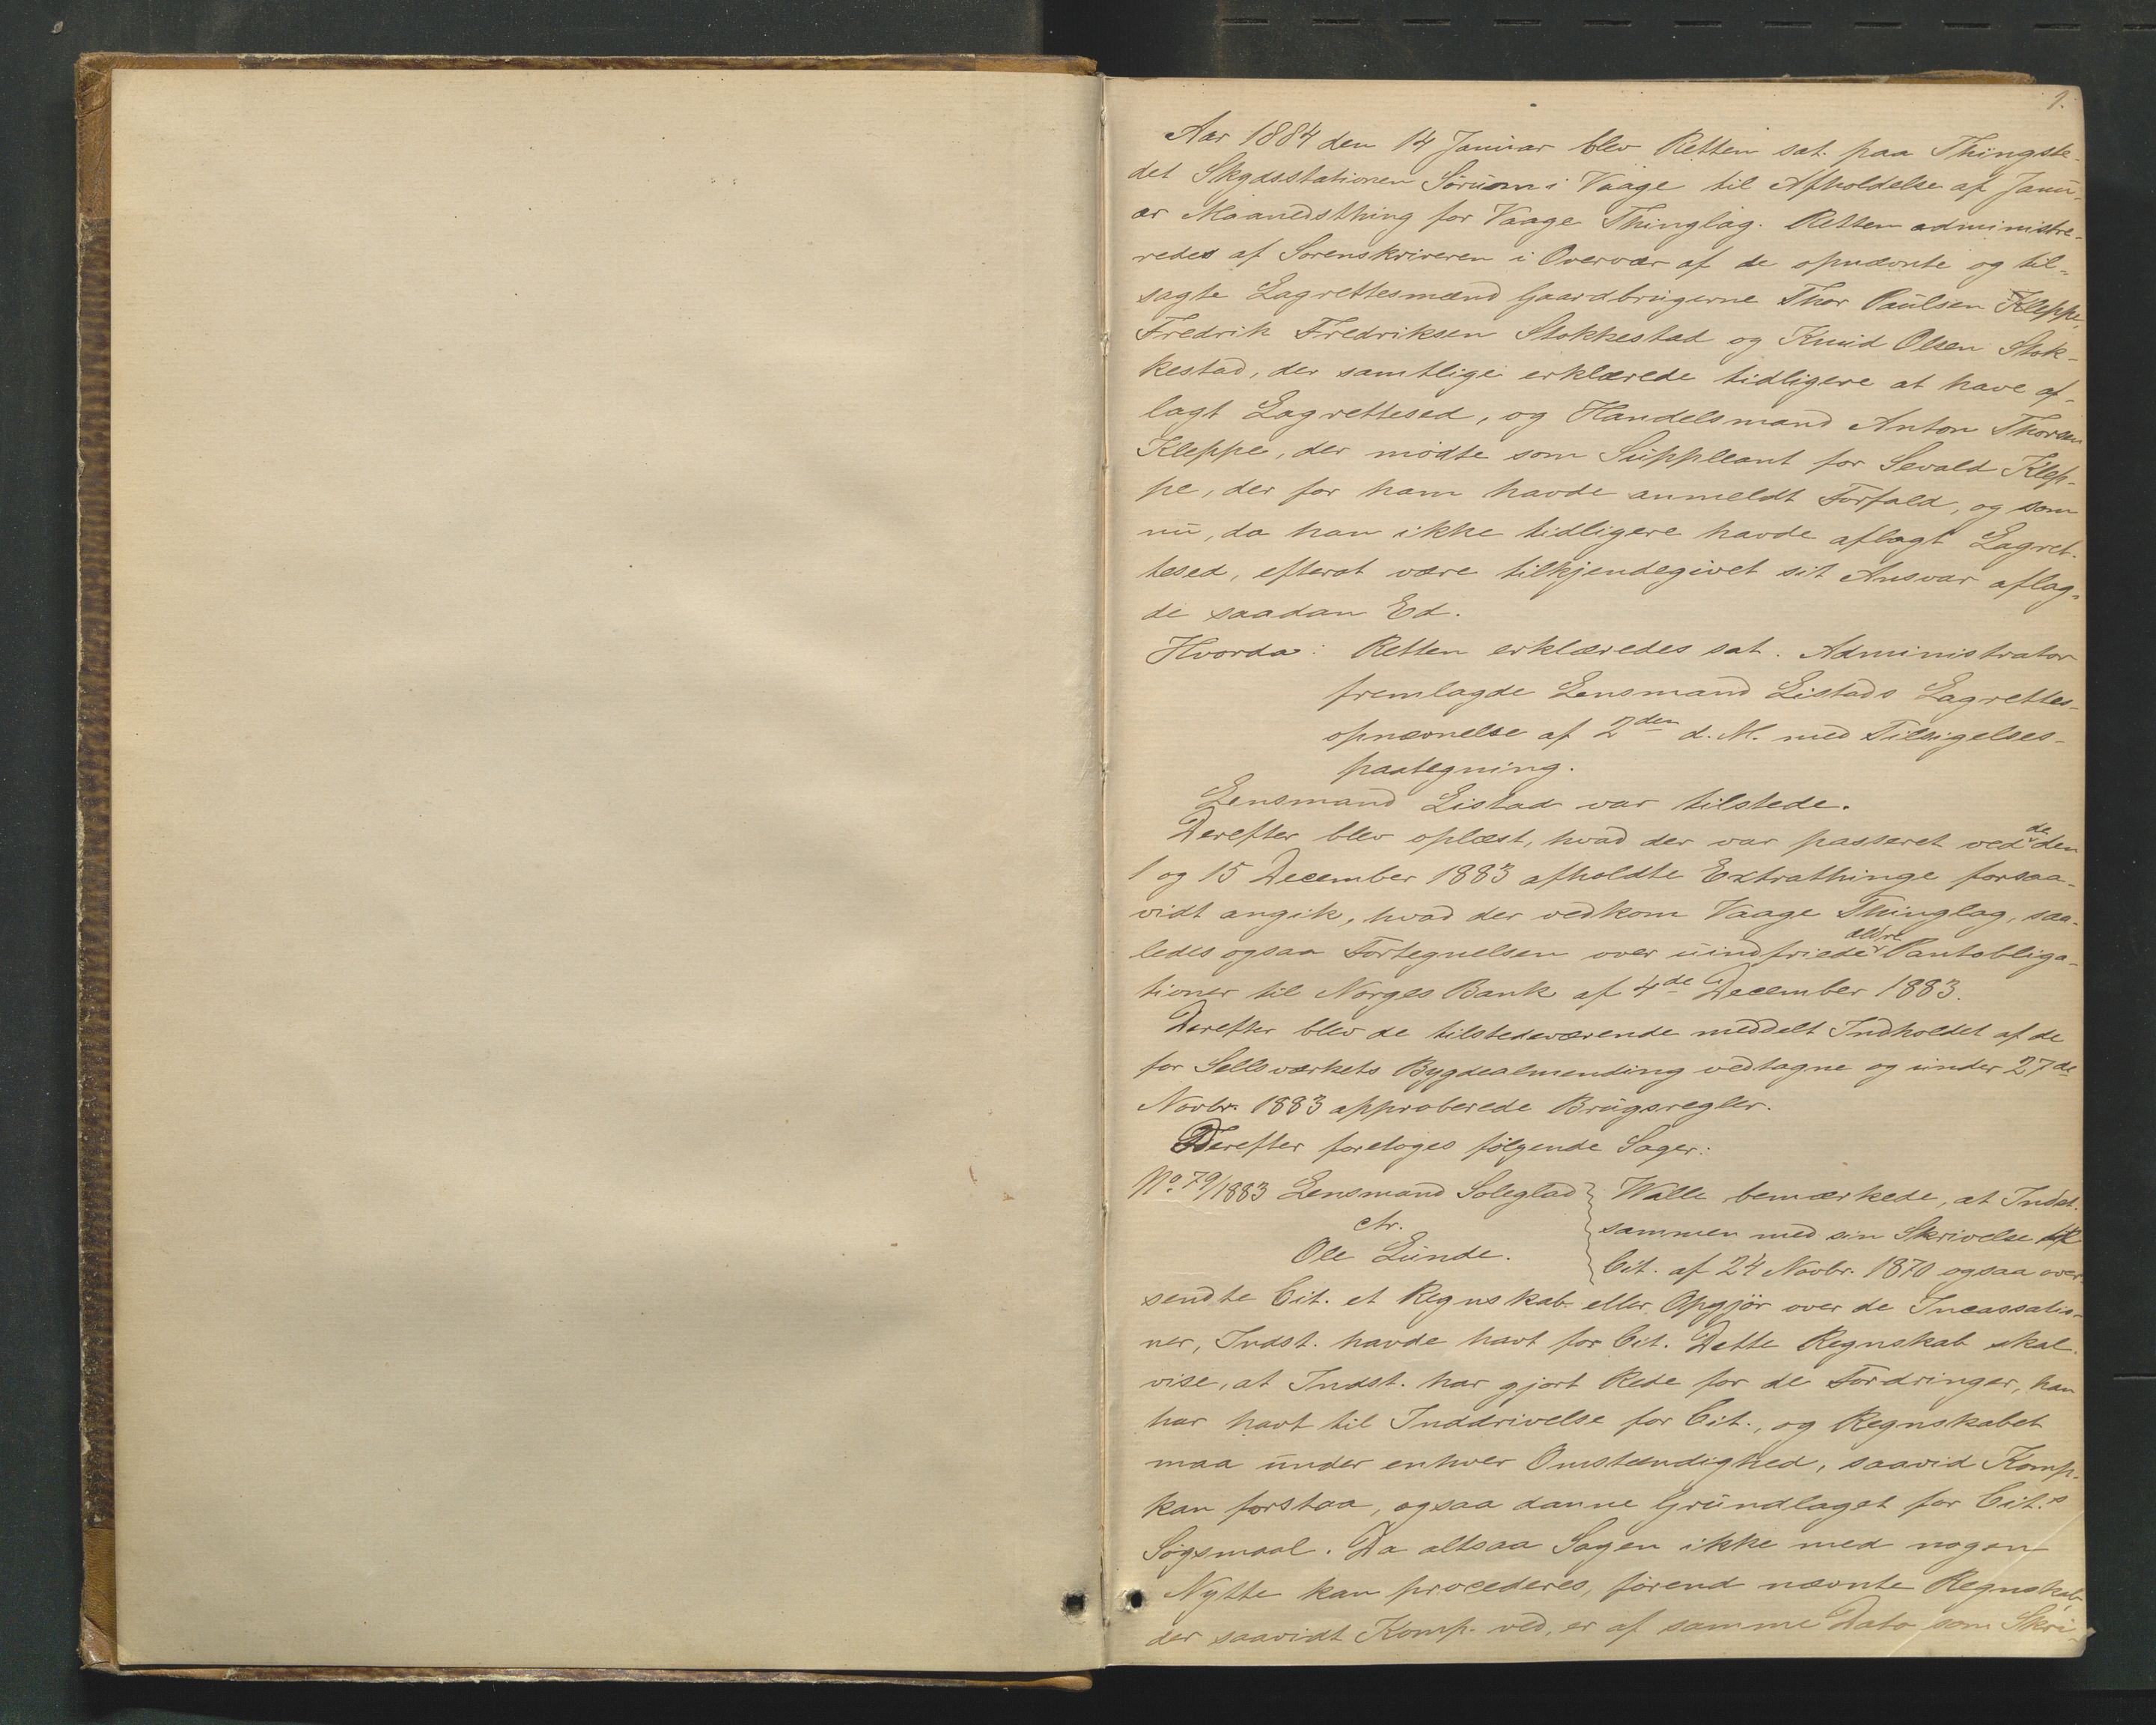 1.
Aar 1884 den 14 Januar blev Retten sat paa Thingste-
det Skydsstationen Sörum i Vaage til Afholdelse af Janu-
ar Maanedsthing for Vaage Thinglag. Retten administre-
redes af Sorenskriveren i Overvær af de opnævnte og til-
sagte Lagrettesmænd Gaardbrugerne Thor Paulsen Kleppe,
Fredrik Fredriksen Stokkestad og Knud Olsen Stok-
kestad, der samtlige erklærede tidligere at have af-
lagt Lagrettesed, og Handelsmand Anton Thorsen
Kleppe, der mödte som Suppleant for Sevald Klep-
pe, der for ham havde anmeldt Forfald, og som
nu, da han ikke tidligere havde aflagt Lagret-
tesed, efterat være tilkjendegivet sit Ansvar aflag-
de saadan Ed.
Hvorda: Retten erklæredes sat. Administrator
fremlagde Lensmand Listads Lagrettes-
opnævnelse af 2den d. M. med Tilsigelses-
paategning.
Lensmand Listad var tilstede.
Derefter blev oplæst, hvad der var passeret ved de den
1 og 15 December 1883 afholdte Extrathinge forsaa-
vidt angik, hvad der vedkom Vaage Thinglag, saa-
ledes ogsaa Fortegnelsen over uindfriede ældre Pantobliga-
tioner til Norges Bank af 4de December 1883.
Derefter blev de tilstedeværende meddelt Indholdet af de
for Sellsværkets Bygdealmending vedtagne og under 27de
Novbr. 1883 approberede Brugsregler.
Derefter foretoges fölgende Sager:
No. 79/1883 Lensmand Soleglad } Walle bemærkede, at Indst.
ctr. sammen med sin Skrivelse til
Ole Lunde. Cit. af 24 Novbr. 1870 ogsaa over-
sendte Cit. et Regnskab eller Opgjör over de Incassatio-
ner, Indst. havde havt for Cit. Dette Regnskab skal
vise, at Indst. har gjort Rede for de Fordringer, han
har havt til Inddrivelse for Cit., og Regnskabet
maa under enhver Omstændighed, saavid Komp.
kan forstaa, ogsaa danne Grundlaget for Cit.s
Sögsmaal. Da altsaa Sagen ikke med nogen
Nytte kan procederes, förend nævnte Regnskab,
der saavidt Komp. ved, er af samme Dato som Skri-